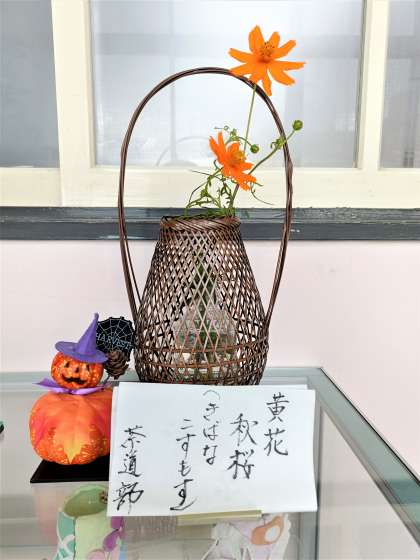 黄花
秋桜
(きばな
こすもす)
茶道部